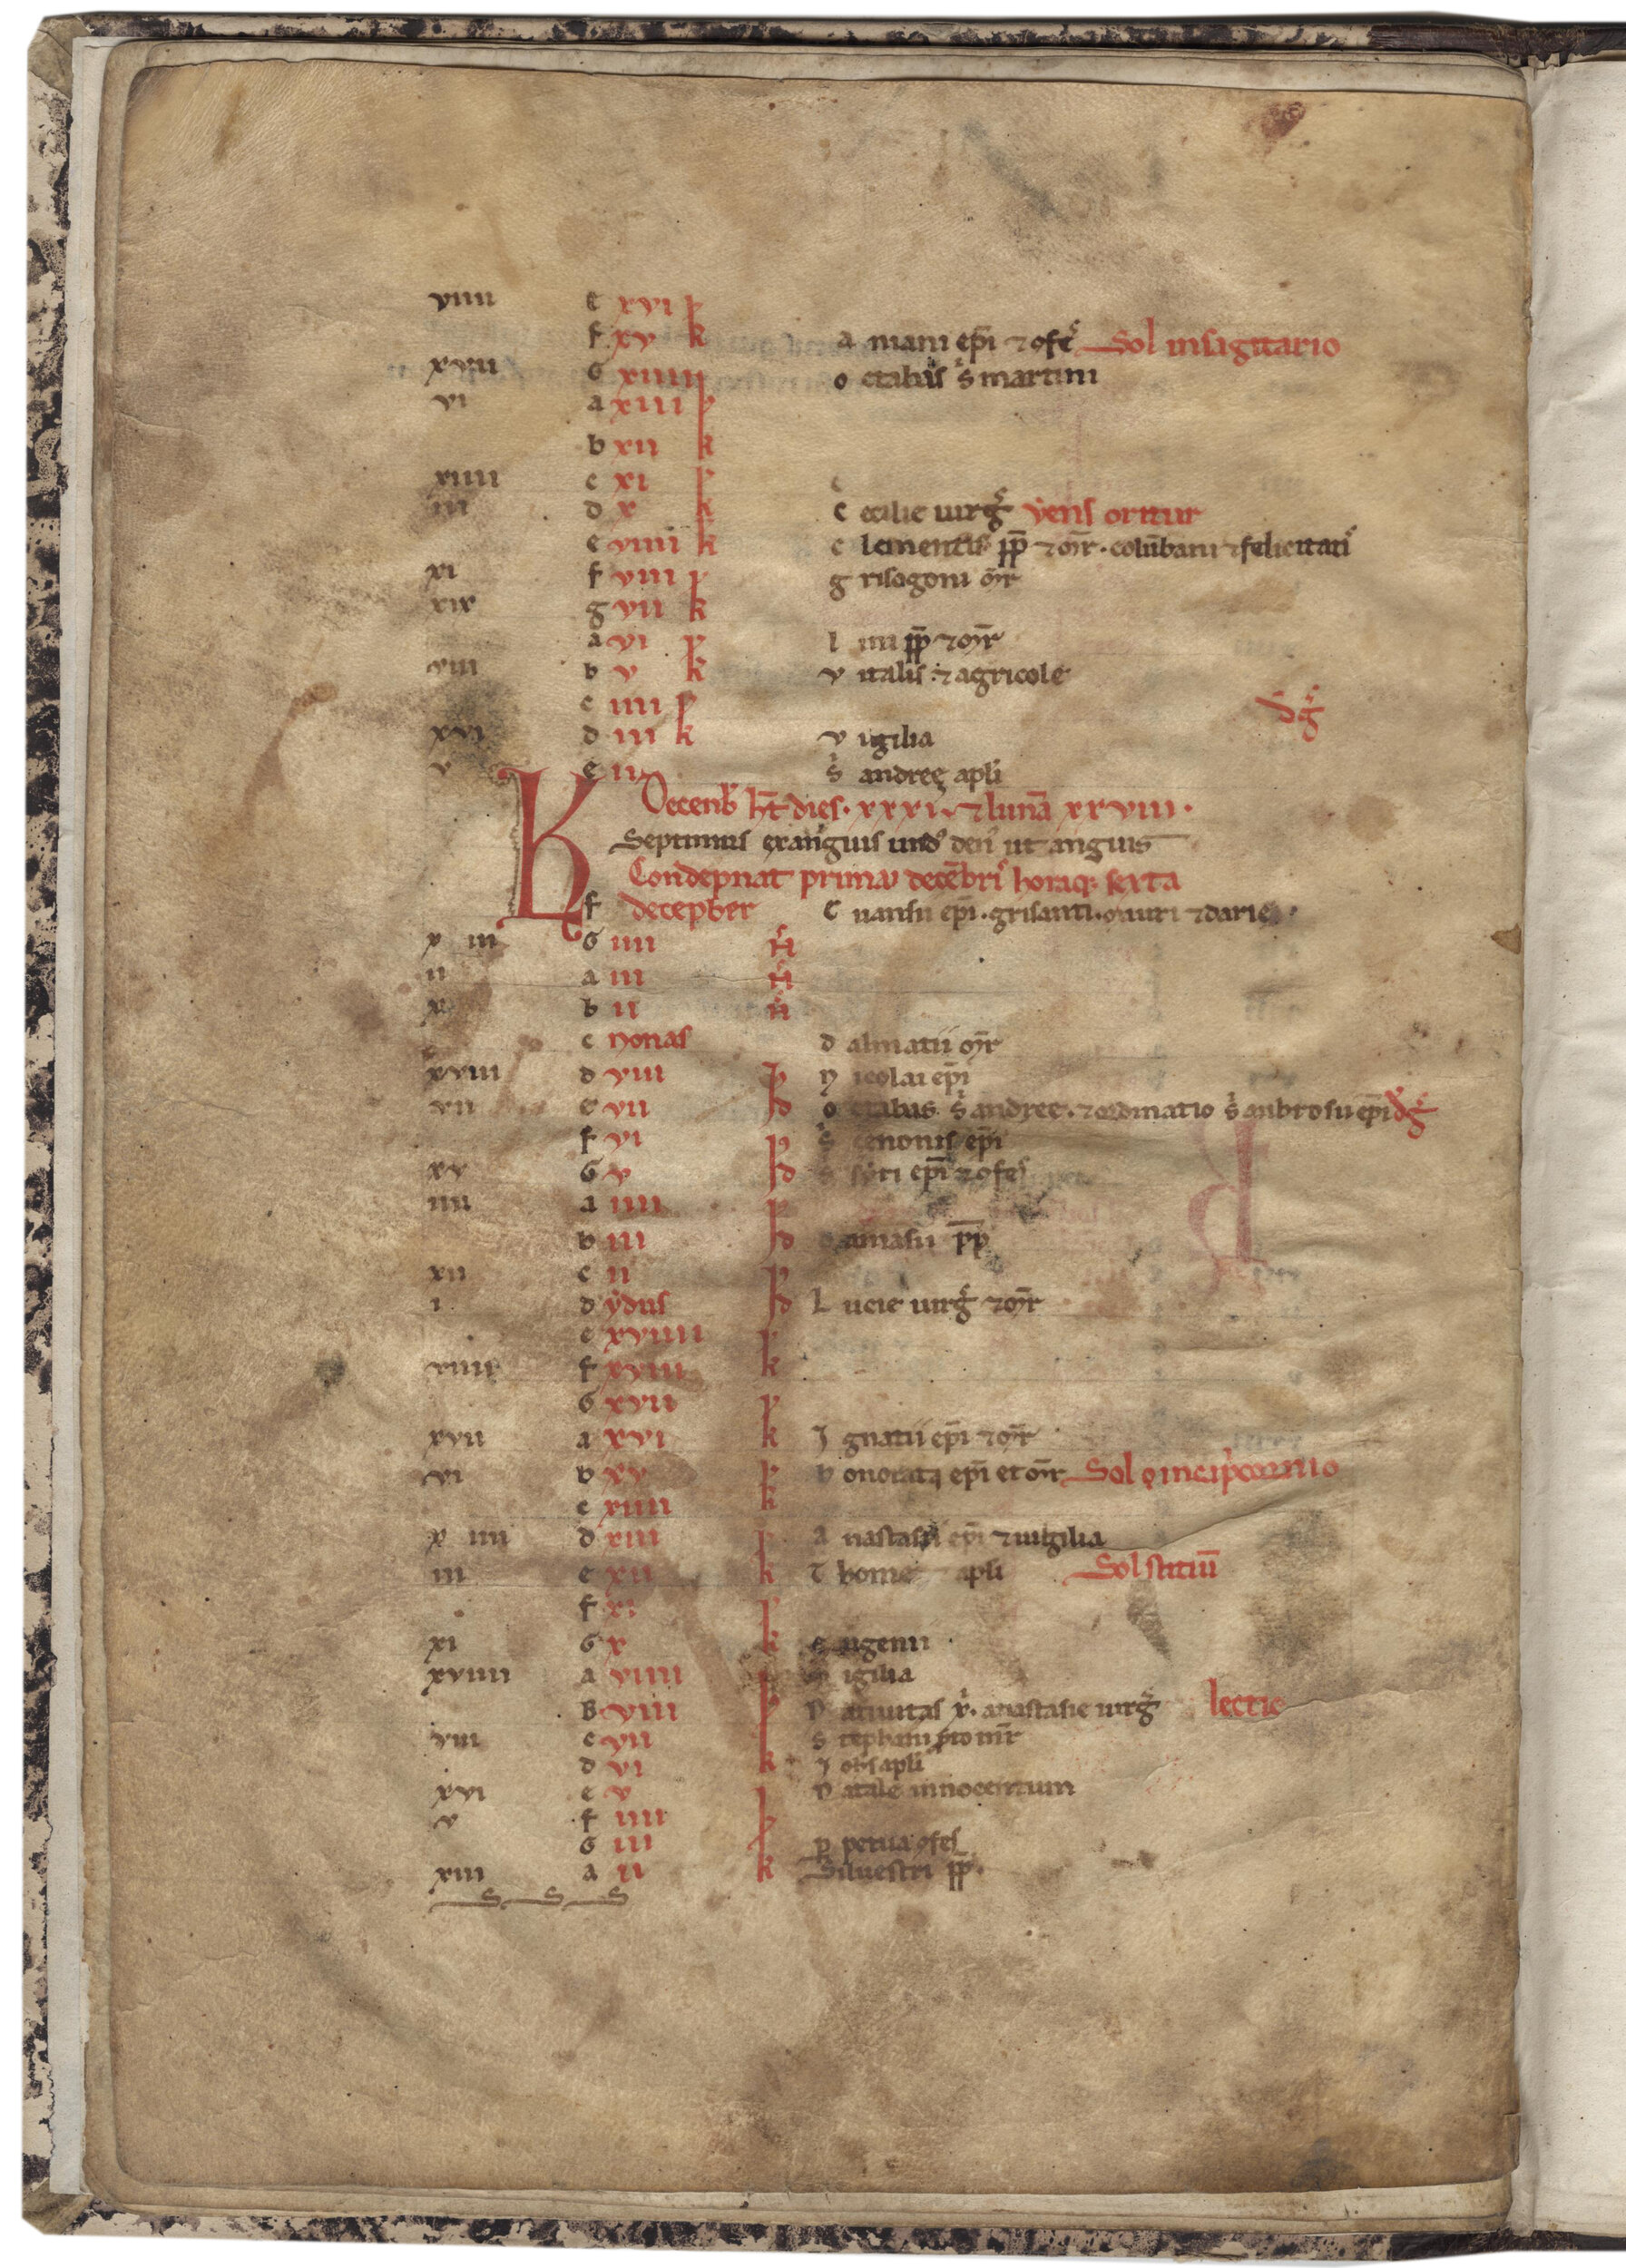 viiii e xvi k
f xv k a niani ep̄i ⁊ ɔfẽ Sol insagittario
xvii G xiiii k o ctabas s̓ martini
vi a xiii k
b xii k
xiiii c xi k
iii d x k C ecilie uirg̃ veris oritur
e viiii k c lementis pp̄ ⁊ m̄r · colūbani ⁊ felicitati
xi f viii k g risogoni m̄r
xix g vii k
a vi k l ini pp̄ ⁊ m̄r
viii b v k v italis ⁊ agricole
c iiii k dg̃
xvi d iii k v igilia
v e ii s̓ andreę apl̓i
K Decenb̓ h̄t dies · xxxi · ⁊ lunā xxviiii ·
Septimus exanguis uiros̓ den̓ ut anguis
Condepnat prima decēbri̓ horaq; sexta
f decepber C uansii ep̄i · grisanti · mauri ⁊ darie ·
x iii G iiii n̄
ii a iii n̄
x b ii n̄
c nonas d almatii m̄r
xviii d viii id n icolai ep̄i
vii e vii id o ctabas s̓ andree · ⁊ ordinatio s̓ anbrosii ep̄i dg̃
f vi id s̓ cenonis ep̄i
xv G v id s siri ep̄i ⁊ ɔfes̓
iiii a iiii id
b iii id d amasii pp̄
xii c ii id
i d ydus L ucie uirg̃ ⁊ m̄r
e xviiii k
viiii f xviii k
G xvii k
xvii a xvi k I gnatii ep̄i ⁊ m̄r
vi b xv k h onorati ep̄i et m̄r Sol
c xiiii k
x iiii d xiii k a nastasii ep̄i ⁊ uigilia
iii e xii k T home apl̓i Sol stitiū
f xi k
xi G x k e ugenii
xviiii a viiii k v igilia
B viii k N atiuitas x̓ · anastasie uirg̃ lectio
viii c vii k s tephani p̓to m̄r
d vi k I ohīs apl̓i
xvi e v k N atale innocentum
v f iiii k
G iii k p petua ɔfes̓
xiii a ii k Siluestri pp̄ ·
S S S